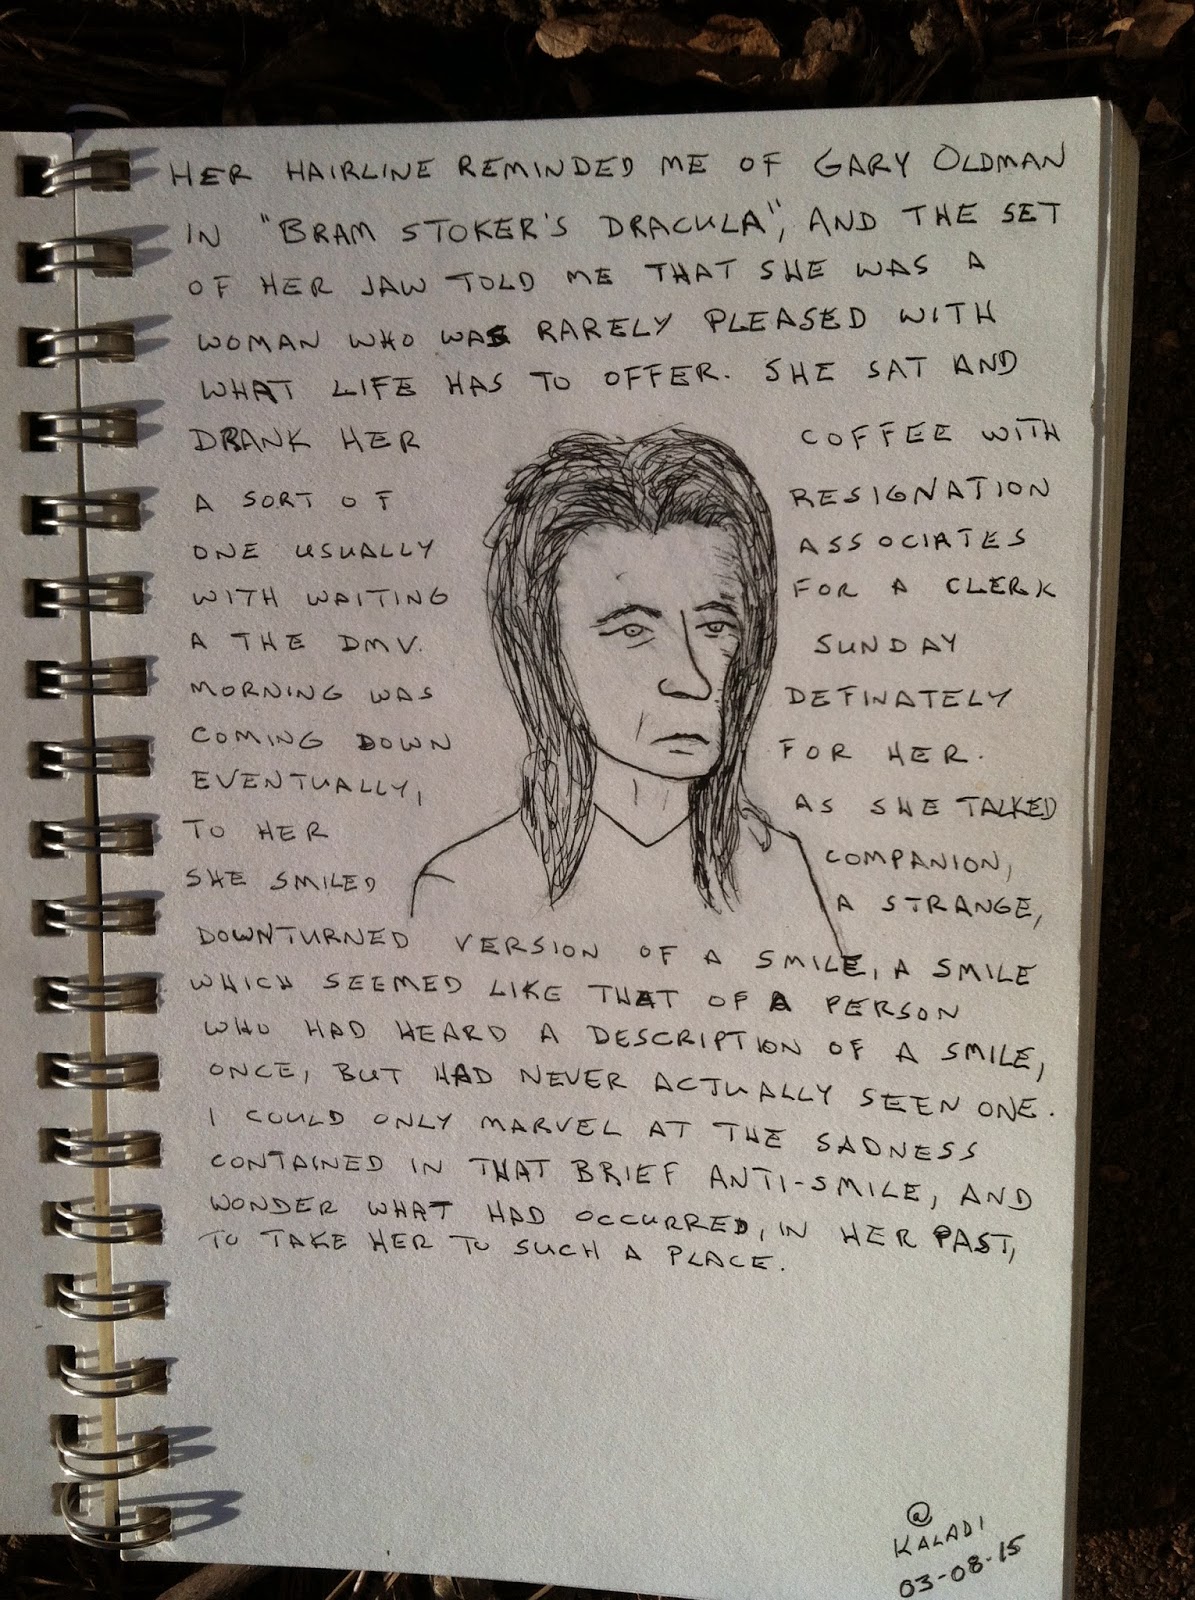 HER HAIRLINE REMINDED ME OF GARY OLDMAN
IN "BRAM STOKER'S DRACULA", AND THE SET
OF HER JAW TOLD ME THAT SHE WAS A
WOMAN WHO WAS RARELY PLEASED WITH
WHAT LIFE HAS TO OFFER. SHE SAT AND
DRANK HER COFFEE WITH
A SORT OF RESIGNATION
ONE USUALLY ASSOCIATES
WITH WAITING FOR A CLERK
A THE DMV. SUNDAY
MORNING WAS DEFINATELY
COMING DOWN FOR HER.
EVENTUALLY, AS SHE TALKED
TO HER COMPANION,
SHE SMILED A STRANGE,
DOWNTURNED VERSION OF A SMILE, A SMILE
WHICH SEEMED LIKE THAT OF A PERSON
WHO HAD HEARD A DESCRIPTION OF A SMILE,
ONCE, BUT HAD NEVER ACTUALLY SEEN ONE.
I COULD ONLY MARVEL AT THE SADNESS
CONTAINED IN THAT BRIEF ANTI-SMILE, AND
WONDER WHAT HAD OCCURRED, IN HER PAST,
TO TAKE HER TO SUCH A PLACE.
@
KALADI
03-08-15